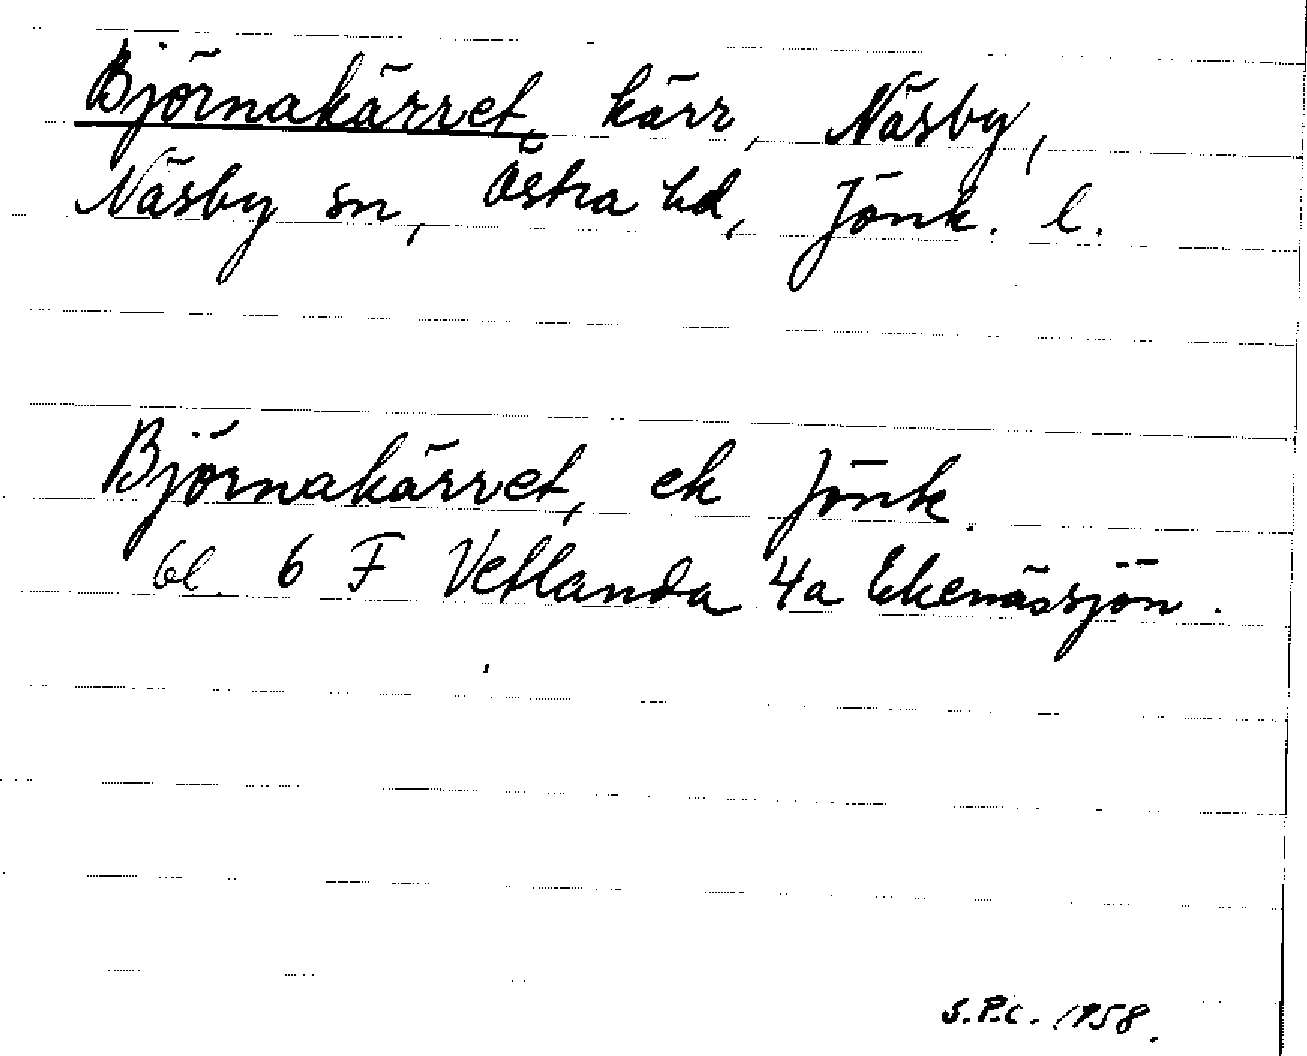 Björnakärret, kärr, Näsby,
Näsby sn, Östra hd, Jönk. l.
Björnakärret, ek Jönk.
bl. 6 F Vetlanda 4a Ekenässjön.
S.P.C. 1958.